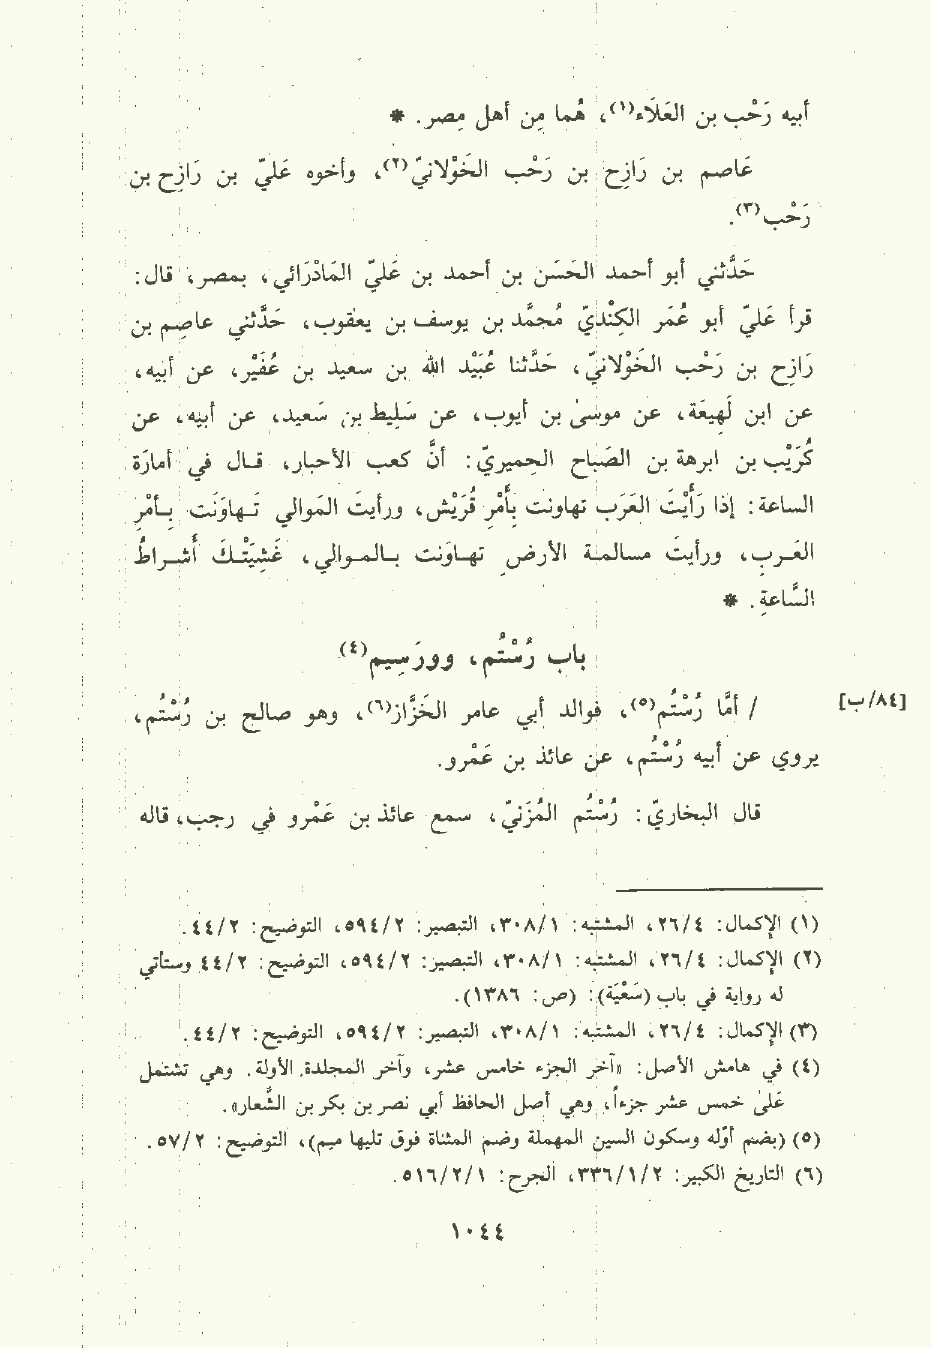 أبيه رَحْب بن العَلَاء(١)، هُما مِن أهل مِصر. *
عَاصم بن رَازِح بن رَحْب الخَوْلانيّ(٢)، وأخوه عَليّ بن رَازِح بن
رَحْب(٣).
حَدَّثني أبو أحمد الحَسَن بن أحمد بن عَليّ المَادْرَائي، بمصر، قال:
قرأ عَليّ أبو عُمَر الكِنْديّ مُحمَّد بن يوسف بن يعقوب، حَدَّثني عاصِم بن
رَازِح بن رَحْب الخَوْلانيّ، حَدَّثنا عُبَيْد الله بن سعيد بن عُفَيْر، عن أبيه،
عن ابن لَهِيعَة، عن موسىٰ بن أيوب، عن سَلِيط بن سَعيد، عن أبيه، عن
كُرَيْب بن ابرهة بن الصَباح الحِميريّ: أنَّ كعب الأحبار، قـال في أمارَة
الساعة: إذا رَأَيْتَ العَرَب تهاونت بِأَمْرِ قُرَيْش، ورأيتَ المَوالي تَـهاوَنَت بِـأمْرِ
العَـربِ، ورأيتَ مسالمـة الأرضِ تهـاوَنت بـالمـوالي، غَشِيَتْـكَ أَشـراطُ
السَّاعةِ. *
باب رُسْتُم، وورَسِيم(٤)
[٨٤/ب] / أمَّا رُسْتُم(٥)، فوالد أبي عامر الخَزَّاز(٦)، وهو صالح بن رُسْتُم،
يروي عن أبيه رُسْتُم، عن عائذ بن عَمْرو.
قال البخاريّ: رُسْتُم المُزَنيّ، سمع عائذ بن عَمْرو في رجب، قاله
(١) الإكمال: ٢٦/٤، المشتبه: ٣٠٨/١، التبصير: ٥٩٤/٢، التوضيح: ٤٤/٢.
(٢) الإكمال: ٢٦/٤، المشتبه: ٣٠٨/١، التبصير: ٥٩٤/٢، التوضيح: ٤٤/٢ وستأتي
له رواية في باب (سَعْيَة): (ص: ١٣٨٦).
(٣) الإكمال: ٢٦/٤، المشتبه: ٣٠٨/١، التبصير: ٥٩٤/٢، التوضيح: ٤٤/٢.
(٤) في هامش الأصل: «آخر الجزء خامس عشر، وآخر المجلدة الأولة. وهي تشتمل
عَلىٰ خمس عشر جزءاُ، وهي أصل الحافظ أبي نصر بن بكر بن الشَّعار».
(٥) (بضم أوّله وسكون السين المهملة وضم المثناة فوق تليها ميم)، التوضيح: ٥٧/٢.
(٦) التاريخ الكبير: ٣٣٦/١/٢، الجرح: ٥١٦/٢/١.
١٠٤٤